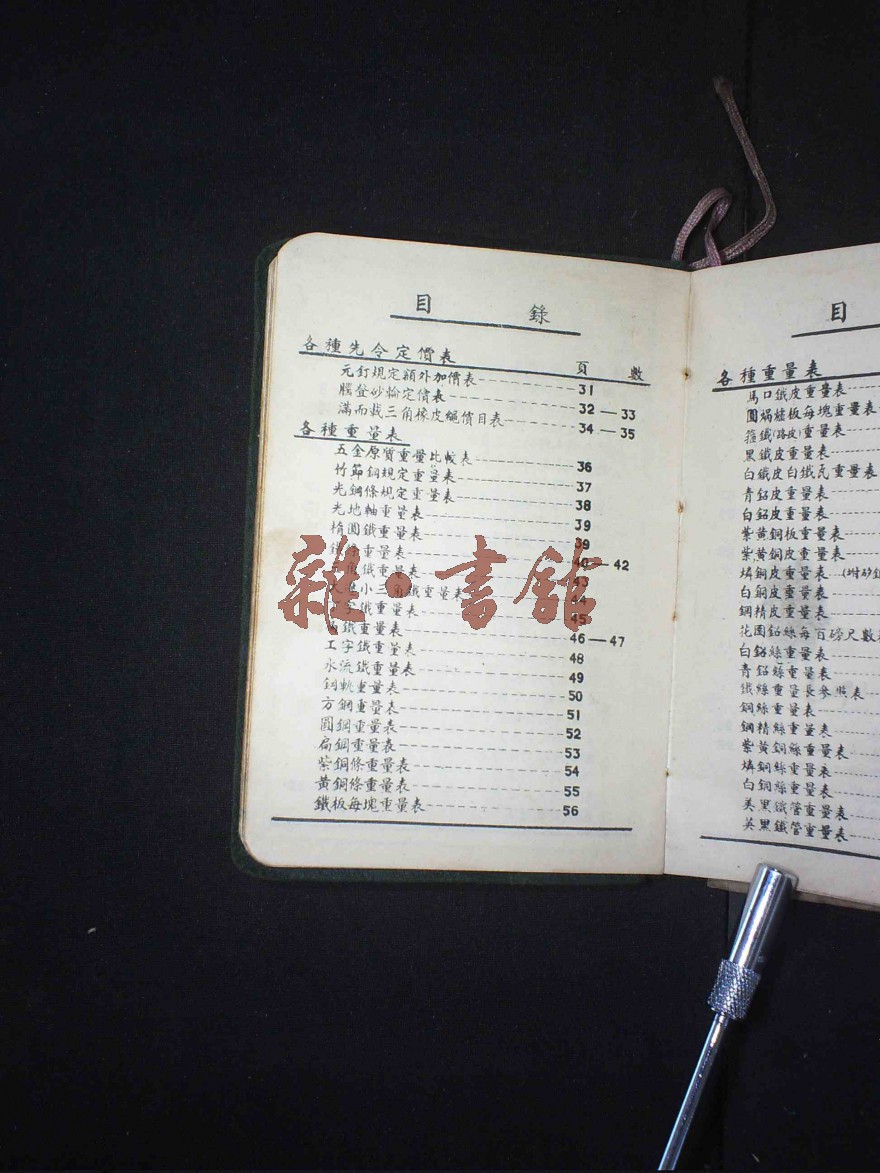 目 錄
各種先令定價表
頁 數
元釘規定額外加價表 31
騰登砂輪定價表 32—33
滿而裁三角橡皮繩價目表 34—35
各種重量表
五金原質重量比較表 36
竹節鋼規定重量表 37
光鋼條規定重量表 38
光地軸重量表 39
橢圓鐵重量表 39
鐵條重量表 40—42
鐵重量表 43
小三角鐵重量表 44
字鐵重量表 45
鐵重量表 46—47
工字鐵重量表 48
水流鐵重量表 49
鋼軌重量表 50
方鋼重量表 51
圓鋼重量表 52
扁鋼重量表 53
紫銅條重量表 54
黃銅條重量表 55
鐵板每塊重量表 56
目
各種重量表
馬口鐵皮重量表
圓焗爐板每塊重量表
箍鐵(路皮)重量表
黑鐵皮重量表
白鐵皮白鐵瓦重量表
青鉛皮重量表
白鉛皮重量表
紫黃銅板重量表
紫黃銅皮重量表
燐銅皮重量表
白銅皮重量表
鋼精皮重量表
花園鉛絲每百磅尺數
白鉛絲重量表
青鉛絲重量表
鐵絲重量長參照表
銅絲重量表
鋼精絲重量表
紫黃銅絲重量表
燐銅絲重量表
白銅絲重量表
美黑鐵管重量表
英黑鐵管重量表
雜·書館